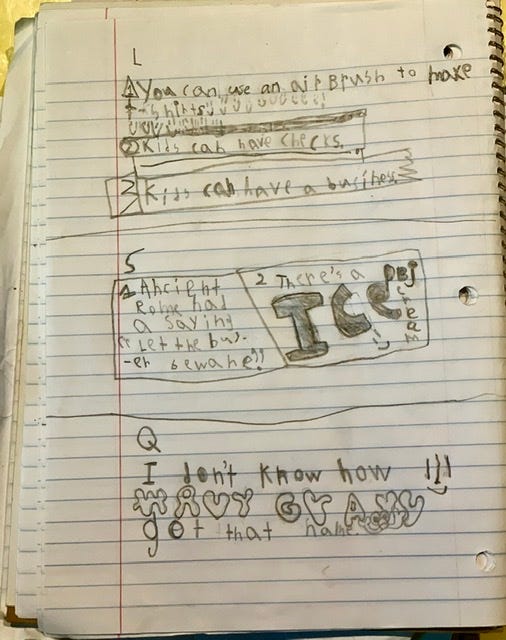 L
1 You can use an air Brush to make
t-shirts!
2 Kids can have checks.
3 Kids can have a business.
S
1 Ancient
Rome had
a saying
"Let the buy-
er beware!"
2 There's a
PBJ
ICe
cream
:)
Q
I don't know how !!!
WAVY GVAVY
get that name.